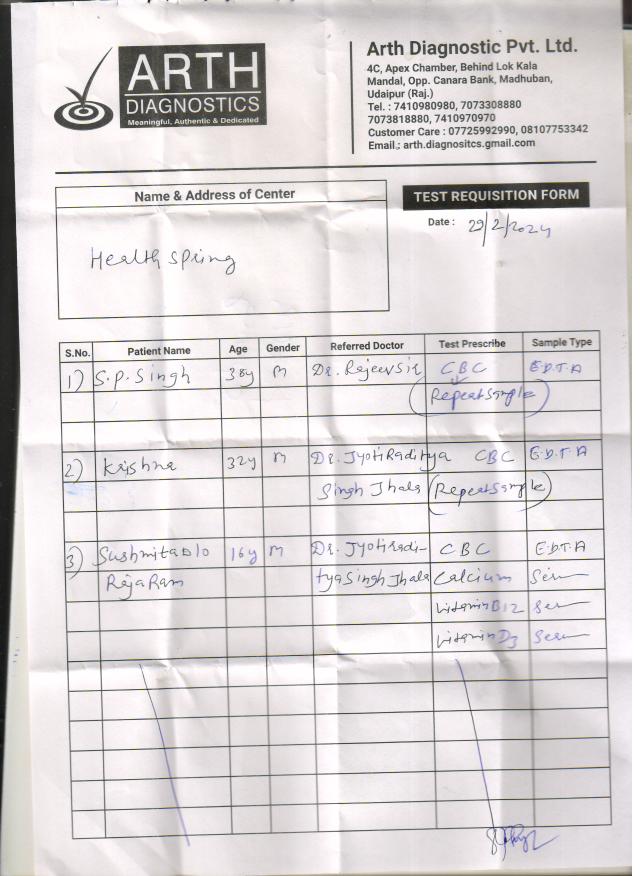 ARTH
DIAGNOSTICS
Meaningful, Authentic & Dedicated
Arth Diagnostic Pvt. Ltd.
4C, Apex Chamber, Behind Lok Kala
Mandal, Opp. Canara Bank, Madhuban,
Udaipur (Raj.)
Tel. : 7410980980, 7073308880
7073818880, 7410970970
Customer Care : 07725992990, 08107753342
Email.: arth.diagnositcs.gmail.com
Name & Address of Center
TEST REQUISITION FORM
Date : 29/2/2024
Health Spring
S.No. Patient Name Age Gender Referred Doctor Test Prescribe Sample Type
1) S.P. Singh 38y M Dr. Rajeev Sir CBC E.D.T.A
(Repeat Sample)
2) Krishna 32y M Dr. Jyotiraditya CBC E.D.T.A
Singh Jhala (Repeat Sample)
3) Sushmita D/o 16y M Dr. Jyotiradi- CBC E.D.T.A
Rajaram tya Singh Jhala Calcium
Vitamin B12
Vitamin D3